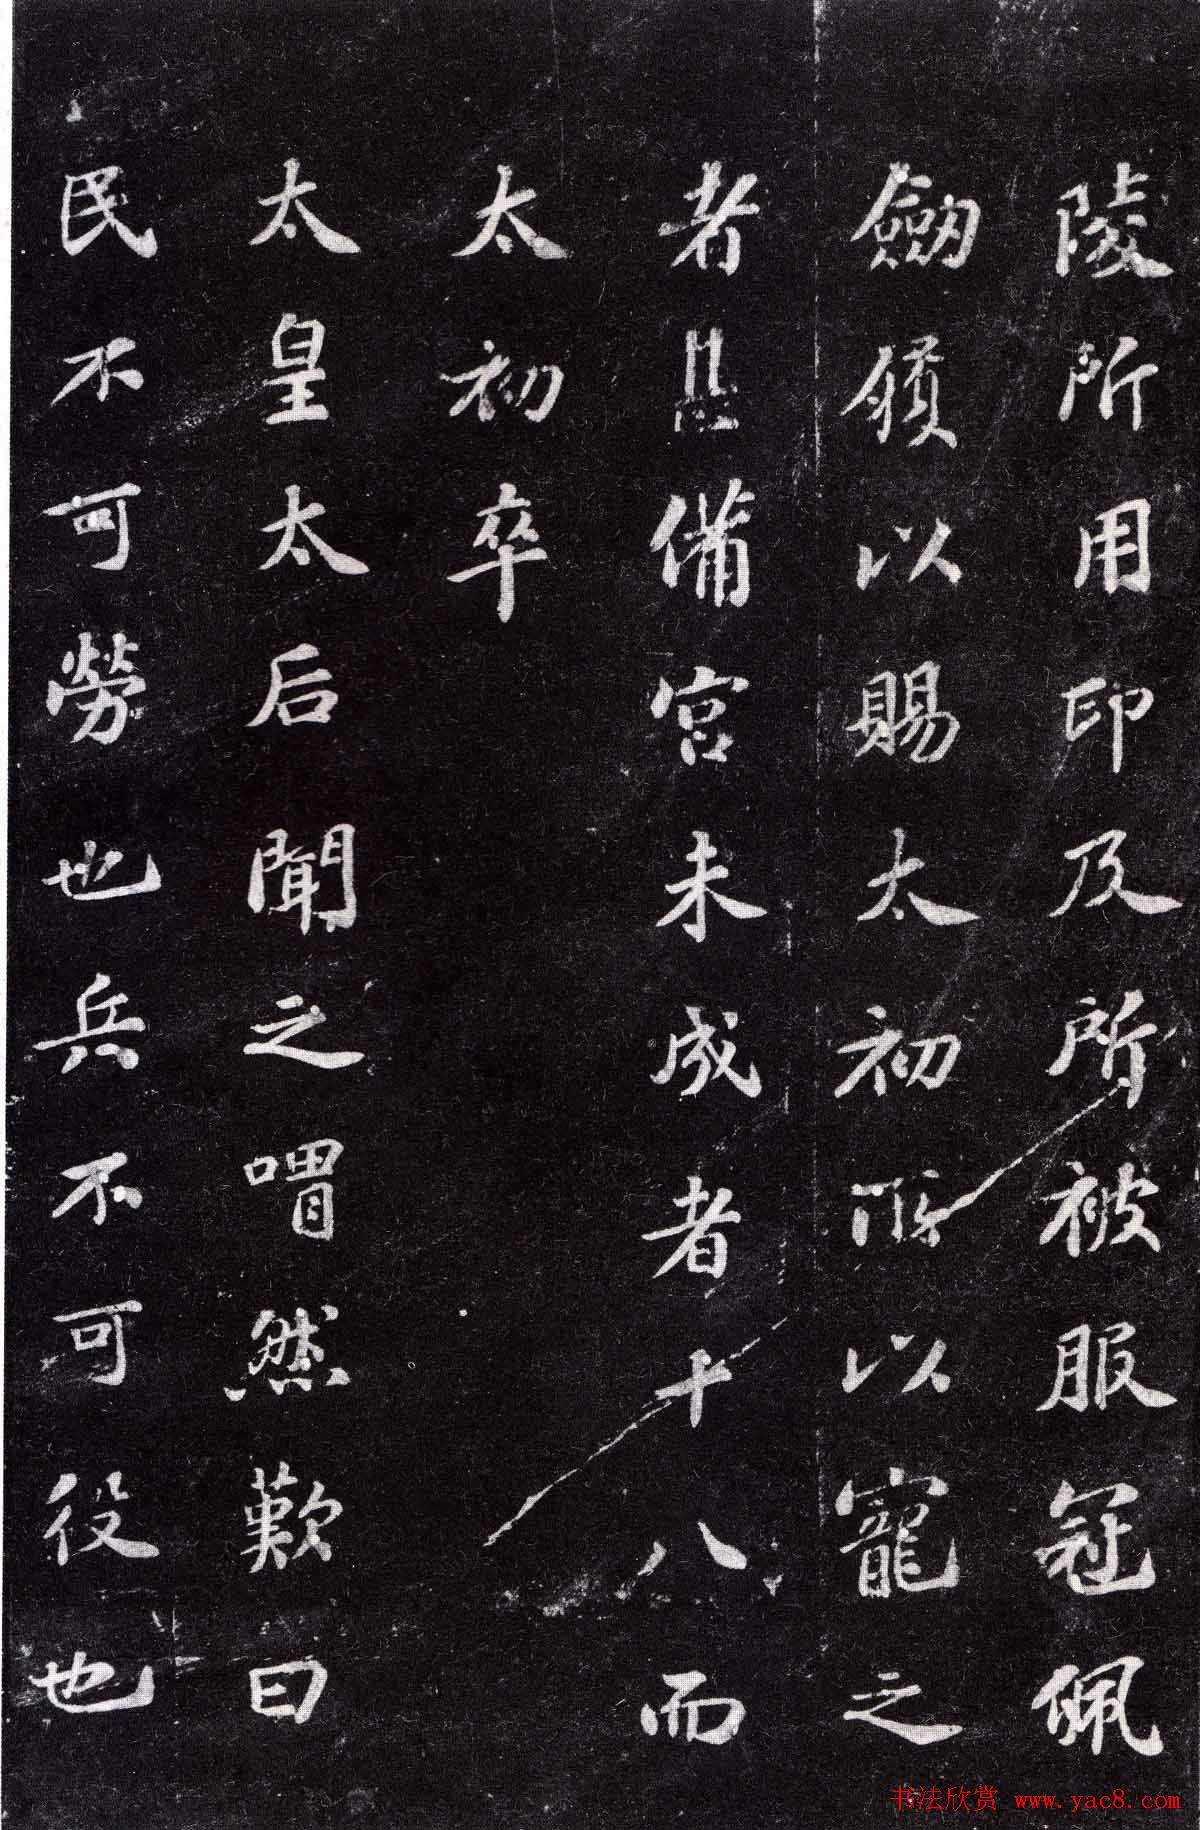 陵所用印及所被服冠佩
劒履以賜太初所以寵之
者具備宮未成者十八而
太初卒
太皇太后聞之喟然歎曰
民不可勞也兵不可役也
书法欣赏 www.yac8.com